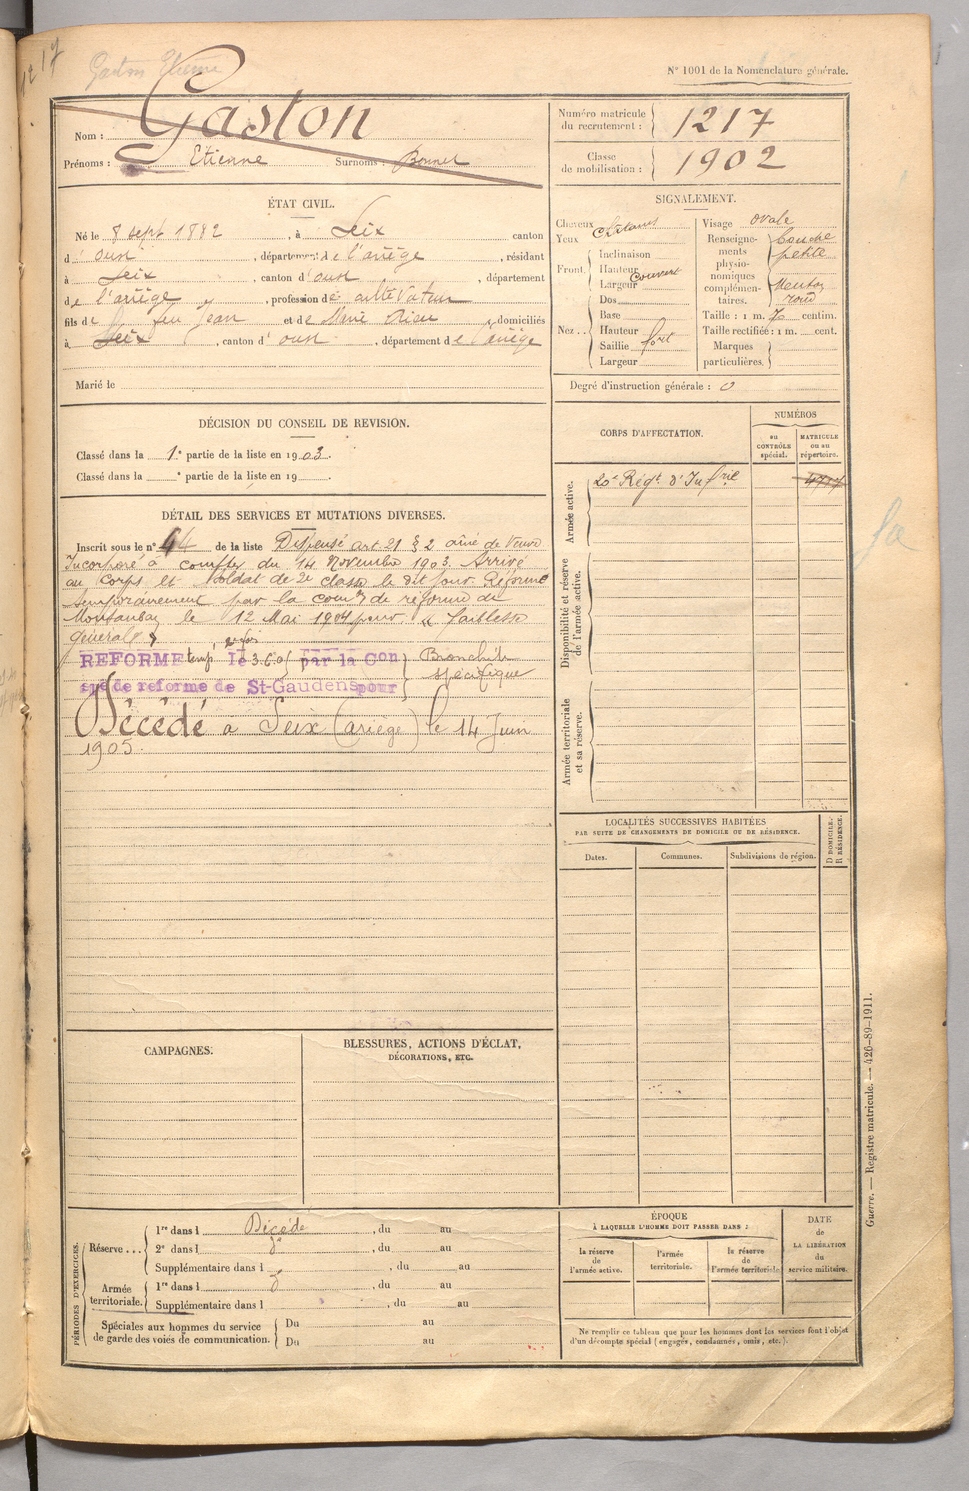 1217
Gaston Etienne
N° 1001 de la Nomenclature générale.
Nom : Gaston
Prénoms : Etienne Surnoms : Bonnet
Numéro matricule du recrutement : 1217
Classe de mobilisation : 1902
ÉTAT CIVIL.
Né le 8 sept 1882, à Seix canton
d'oust, département de l'ariège, résidant
à Seix, canton d'oust, département
de l'ariège, profession de cultivateur
fils de feu Jean et de Marie Rieu domiciliés
à Seix, canton d'oust, département de l'ariège
Marié le
SIGNALEMENT.
Cheveux châtains
Yeux
Front.
Inclinaison
Hauteur
Largeur couvert
Dos
Nez..
Base
Hauteur
Saillie fort
Largeur
Visage ovale
Renseignements physionomiques complémentaires.
bouche
petite
Menton
rond
Taille : 1 m. centim.
Taille rectifiée : 1 m. cent.
Marques particulières.
Degré d'instruction générale : 0
DÉCISION DU CONSEIL DE REVISION.
Classé dans la 1e partie de la liste en 1903.
Classé dans la e partie de la liste en 19 .
DÉTAIL DES SERVICES ET MUTATIONS DIVERSES.
Inscrit sous le n° 44 de la liste Dispensé art 21 § 2 aîné de veuve
Incorporé à compter du 14 Novembre 1903. Arrivé
au Corps et soldat de 2e classe le dit jour. Réformé
temporairement par la comon de réforme de
Montauban le 12 Mai 1904 pour « faiblesse
générale »
REFORME temp le par la Con Bronchite
spé de reforme de St-Gaudens pour spécifique
Décédé à Seix (ariège) le 14 Juin
1905.
CORPS D'AFFECTATION.
NUMÉROS
au CONTRÔLE spécial.
MATRICULE ou au répertoire.
Armée active.
20e Régt d'Infrie
Disponibilité et réserve de l'armée active.
Armée territoriale et sa réserve.
LOCALITÉS SUCCESSIVES HABITÉES
PAR SUITE DE CHANGEMENTS DE DOMICILE OU DE RÉSIDENCE.
Dates.
Communes.
Subdivisions de région.
D DOMICILE.
R RÉSIDENCE.
CAMPAGNES.
BLESSURES, ACTIONS D'ÉCLAT,
DÉCORATIONS, ETC.
PÉRIODES D'EXERCICES.
Réserve...
1re dans l Décédé, du au
2e dans l do, du au
Supplémentaire dans l, du au
Armée territoriale.
1re dans l, du au
Supplémentaire dans l, du au
Spéciales aux hommes du service
de garde des voies de communication.
Du au
Du au
ÉPOQUE
À LAQUELLE L'HOMME DOIT PASSER DANS :
la réserve de l'armée active.
l'armée territoriale.
la réserve de l'armée territoriale.
DATE
de
LA LIBÉRATION
du
service militaire.
Ne remplir ce tableau que pour les hommes dont les services font l'objet
d'un décompte spécial (engagés, condamnés, omis, etc.).
Guerre. — Registre matricule. — 426-89-1911.